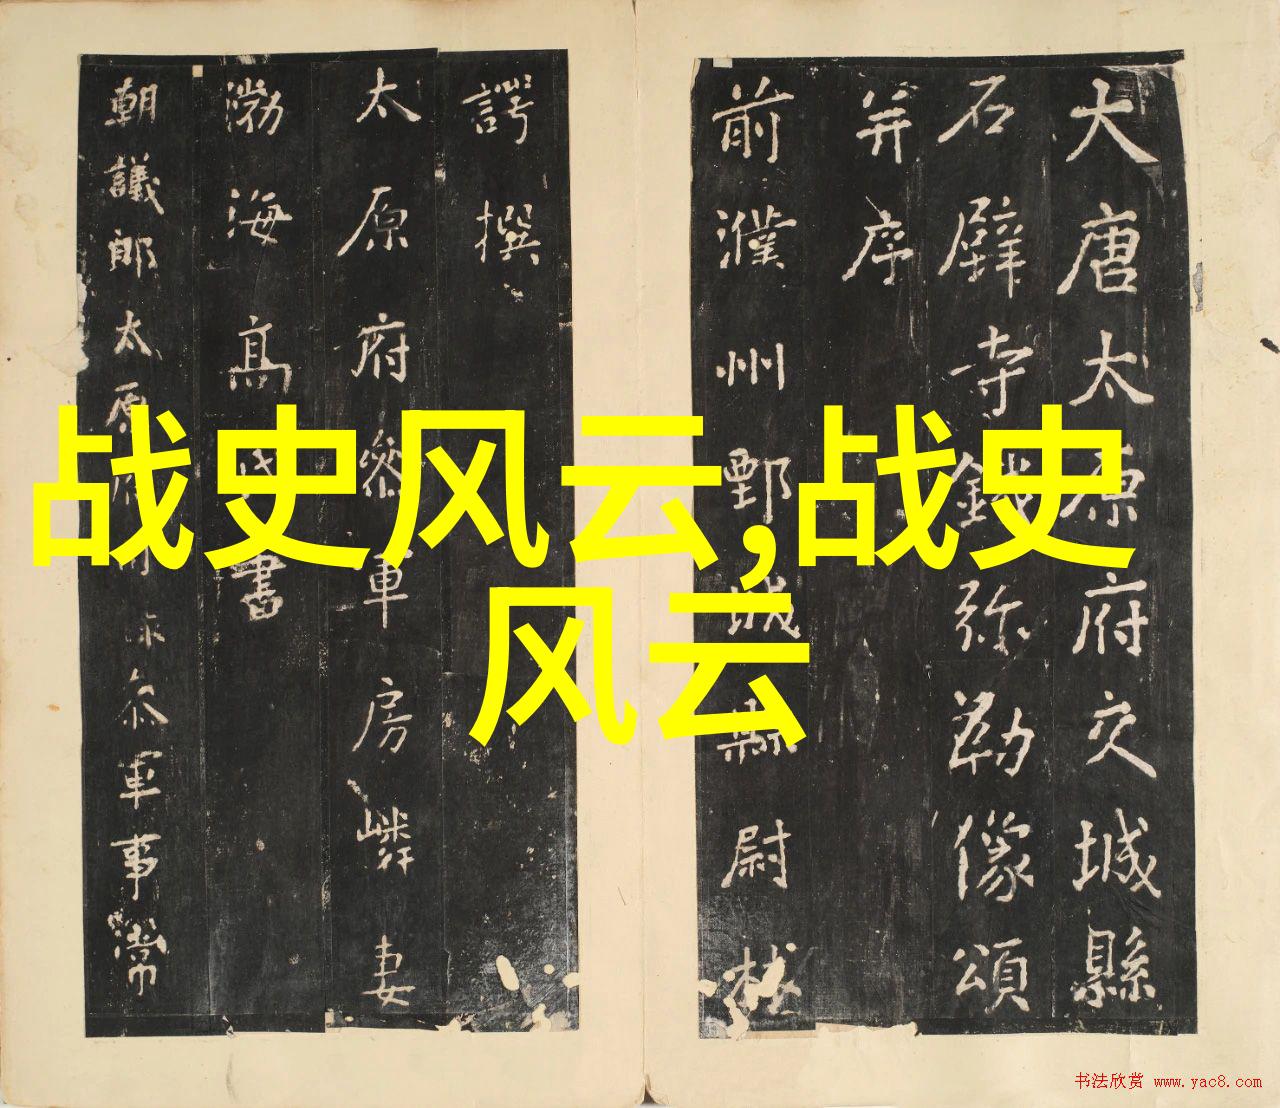 大唐太原府交城縣
石壁寺鐵弥勒像頌
并序
前濮州鄄城縣尉林
諤撰
太原府叅軍房嶙妻
渤海髙氏書
朝議郎太原府司录叅軍事常
战史风云,战史
风云
书法欣赏 www.yac8.com